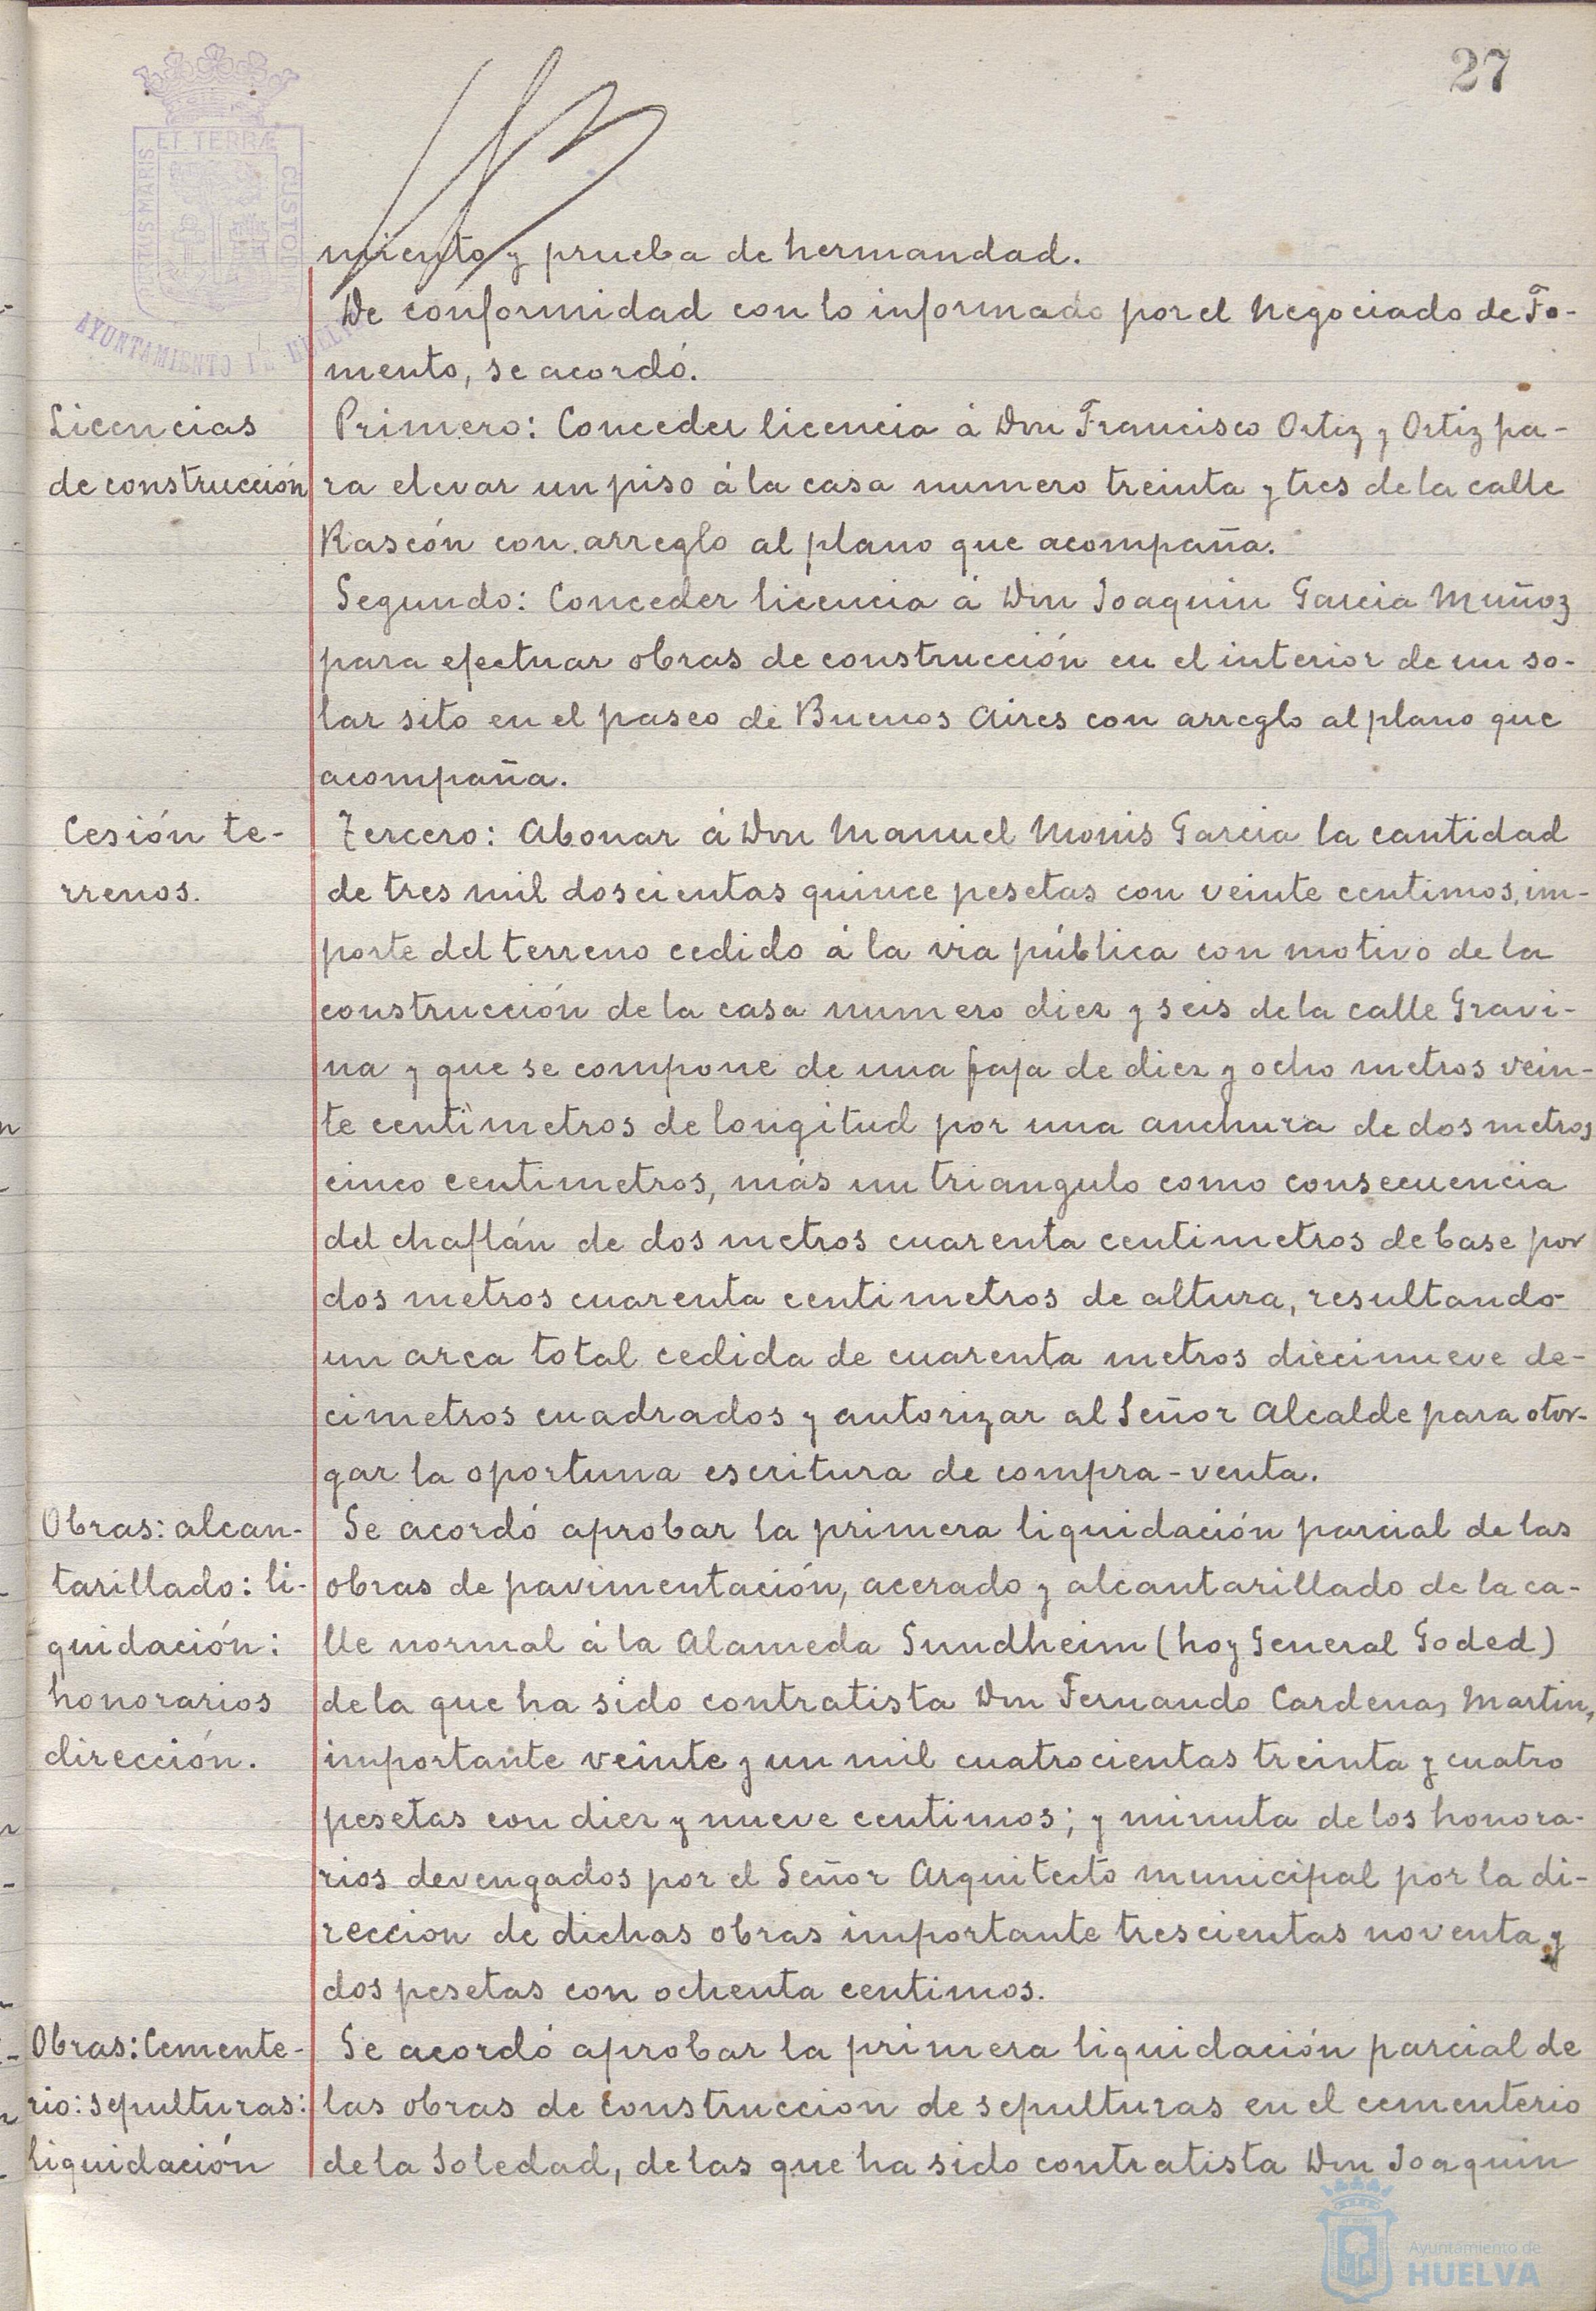 27
PORTUS MARIS
ET TERRÆ
CUSTODIA
AYUNTAMIENTO DE HUELVA
miento y prueba de hermandad.
De conformidad con lo informado por el Negociado de Fo-
mento, se acordó.
Licencias
de construcción
Primero: Conceder licencia á Don Francisco Ortiz y Ortiz pa-
ra elevar un piso á la casa numero treinta y tres de la calle
Rascón con arreglo al plano que acompaña.
Segundo: Conceder licencia á Don Joaquin Garcia Muñoz
para efectuar obras de construcción en el interior de un so-
lar sito en el paseo de Buenos Aires con arreglo al plano que
acompaña.
Cesión te-
rrenos.
Tercero: Abonar á Don Manuel Monis Garcia la cantidad
de tres mil doscientas quince pesetas con veinte centimos, im-
porte del terreno cedido á la via pública con motivo de la
construcción de la casa numero diez y seis de la calle Gravi-
na y que se compone de una faja de diez y ocho metros vein-
te centimetros de longitud por una anchura de dos metros
cinco centimetros, más un triangulo como consecuencia
del chaflán de dos metros cuarenta centimetros de base por
dos metros cuarenta centimetros de altura, resultando
un area total cedida de cuarenta metros diecinueve de-
cimetros cuadrados y autorizar al Señor Alcalde para otor-
gar la oportuna escritura de compra-venta.
Obras: alcan-
tarillado: li-
quidación:
honorarios
dirección.
Se acordó aprobar la primera liquidación parcial de las
obras de pavimentación, acerado y alcantarillado de la ca-
lle normal á la Alameda Sundheim (hoy General Goded)
de la que ha sido contratista Don Fernando Cardenas Martin,
importante veinte y un mil cuatrocientas treinta y cuatro
pesetas con diez y nueve centimos; y minuta de los honora-
rios devengados por el Señor Arquitecto municipal por la di-
reccion de dichas obras importante trescientas noventa y
dos pesetas con ochenta centimos.
Obras: Cemente-
rio: sepulturas:
liquidación
Se acordó aprobar la primera liquidación parcial de
las obras de construccion de sepulturas en el cementerio
de la Soledad, de las que ha sido contratista Don Joaquin
Ayuntamiento de
HUELVA